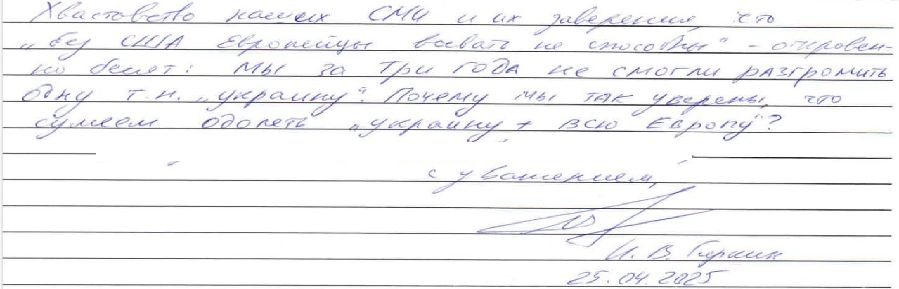 Хвастовство наших СМИ и их заверения, что
„без США Европейцы воевать не способны" - откровен-
но бесят: Мы за ТРИ ГОДА не смогли разгромить
одну т.н. „украину". Почему мы так уверены, что
сумеем одолеть „украину + всю Европу"?
с уважением,
И. В. Гиркин
25.04.2025